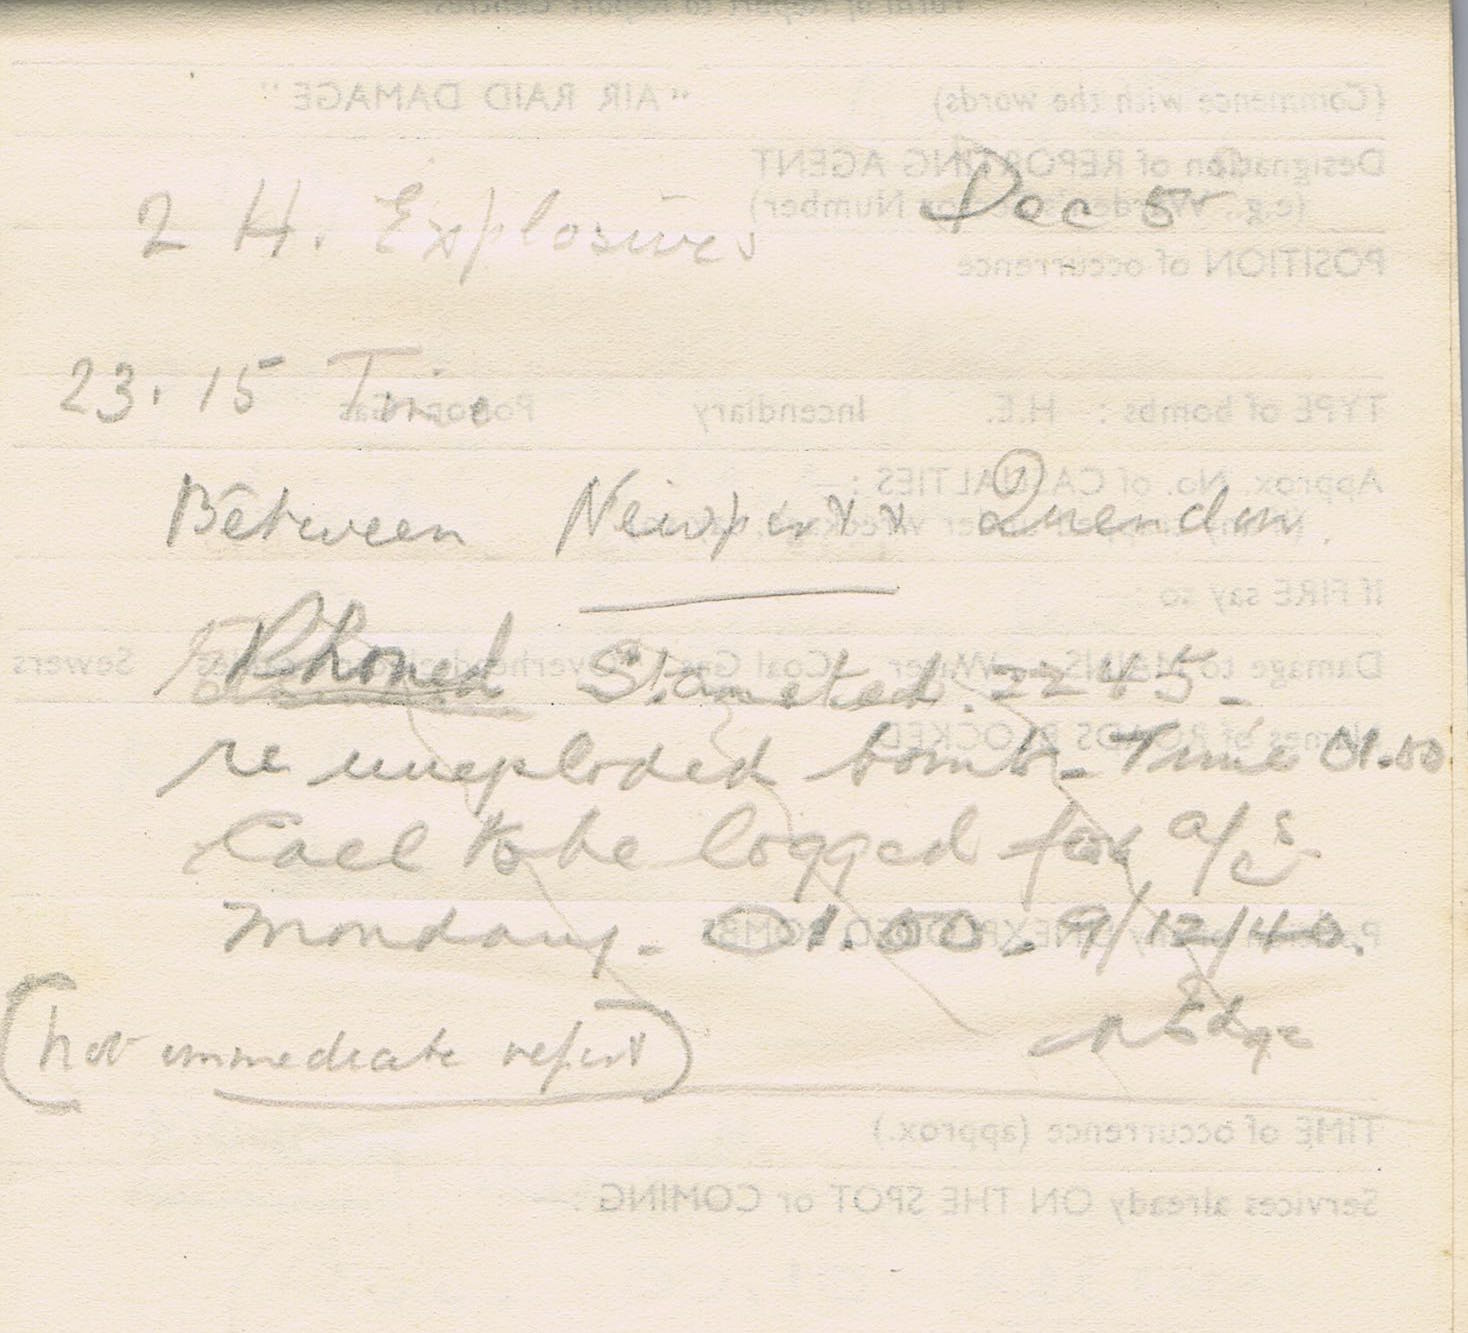 2 H. Explosives Dec 5
23.15 Time
Between Newport & Quendon
Phoned Stansted. 2245-
re unexploded bomb - Time 01.00
Call to be logged for a/cs
Monday - 01.00 - 9/12/40.
Edge
(not immediate report)